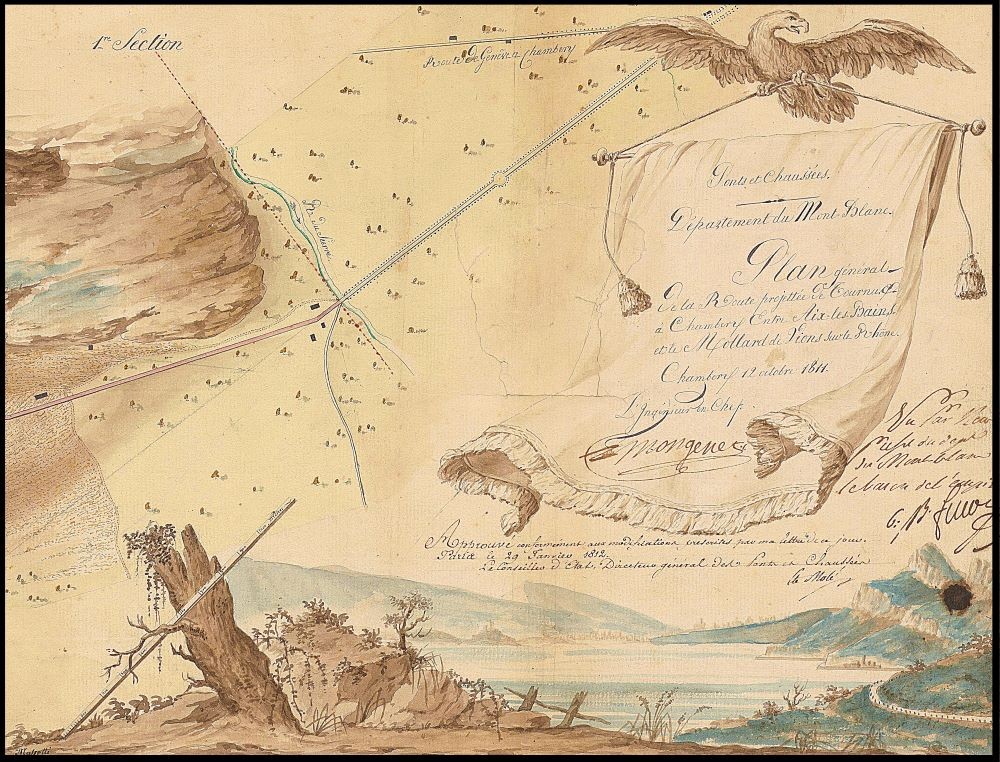 1.re Section
Route de Genève à Chambéry
Ponts et Chaussées.
Département du Mont-Blanc.
Plan général
De la Route projettée de Tournus
à Chambery Entre Aix-les-Bains,
et le Mollard de Vions sur le Rhône.
Chambery 12 octobre 1811.
L'Ingénieur en Chef
Mongenet
Vu Par Nous
Préfet du dépt
du Mont blanc
le baron de l'empire
Approuvé conformément aux modifications prescrites par ma lettre de ce jour.
Paris le 29 Janvier 1812.
Le Conseiller d'Etat, Directeur général des Ponts et Chaussées